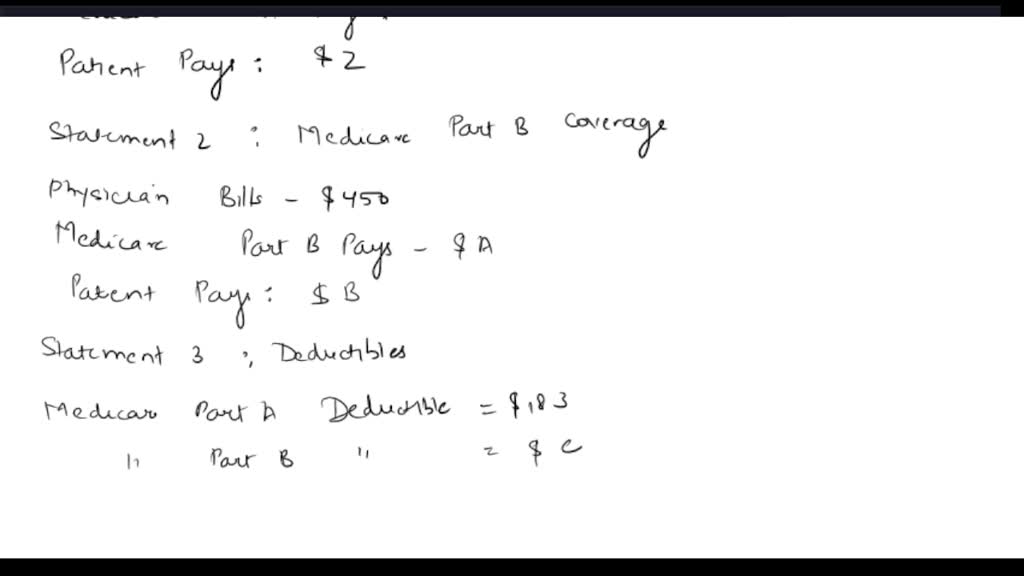 Patient Pays : $ 2
Statement 2 : Medicare Part B Coverage
Physician Bills - $450
Medicare Part B Pays - $ A
Patent Pays : $ B
Statement 3 : Deductibles
Medicar Part A Deductible = $183
" Part B " = $ C